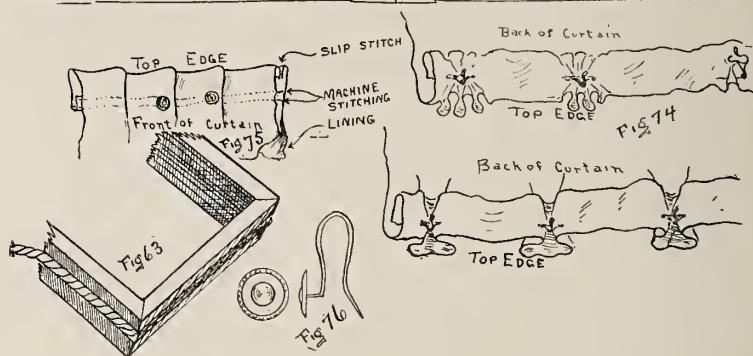 TOP EDGE
SLIP STITCH
MACHINE
STITCHING
LINING
Front of Curtain
Fig 75
Back of Curtain
TOP EDGE
Fig 74
Back of Curtain
TOP EDGE
Fig 63
Fig 76